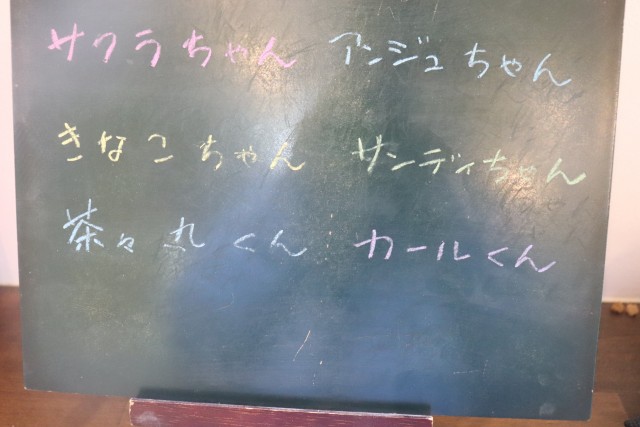 サクラちゃん アンジュちゃん
きなこちゃん サンディちゃん
茶々丸くん カールくん